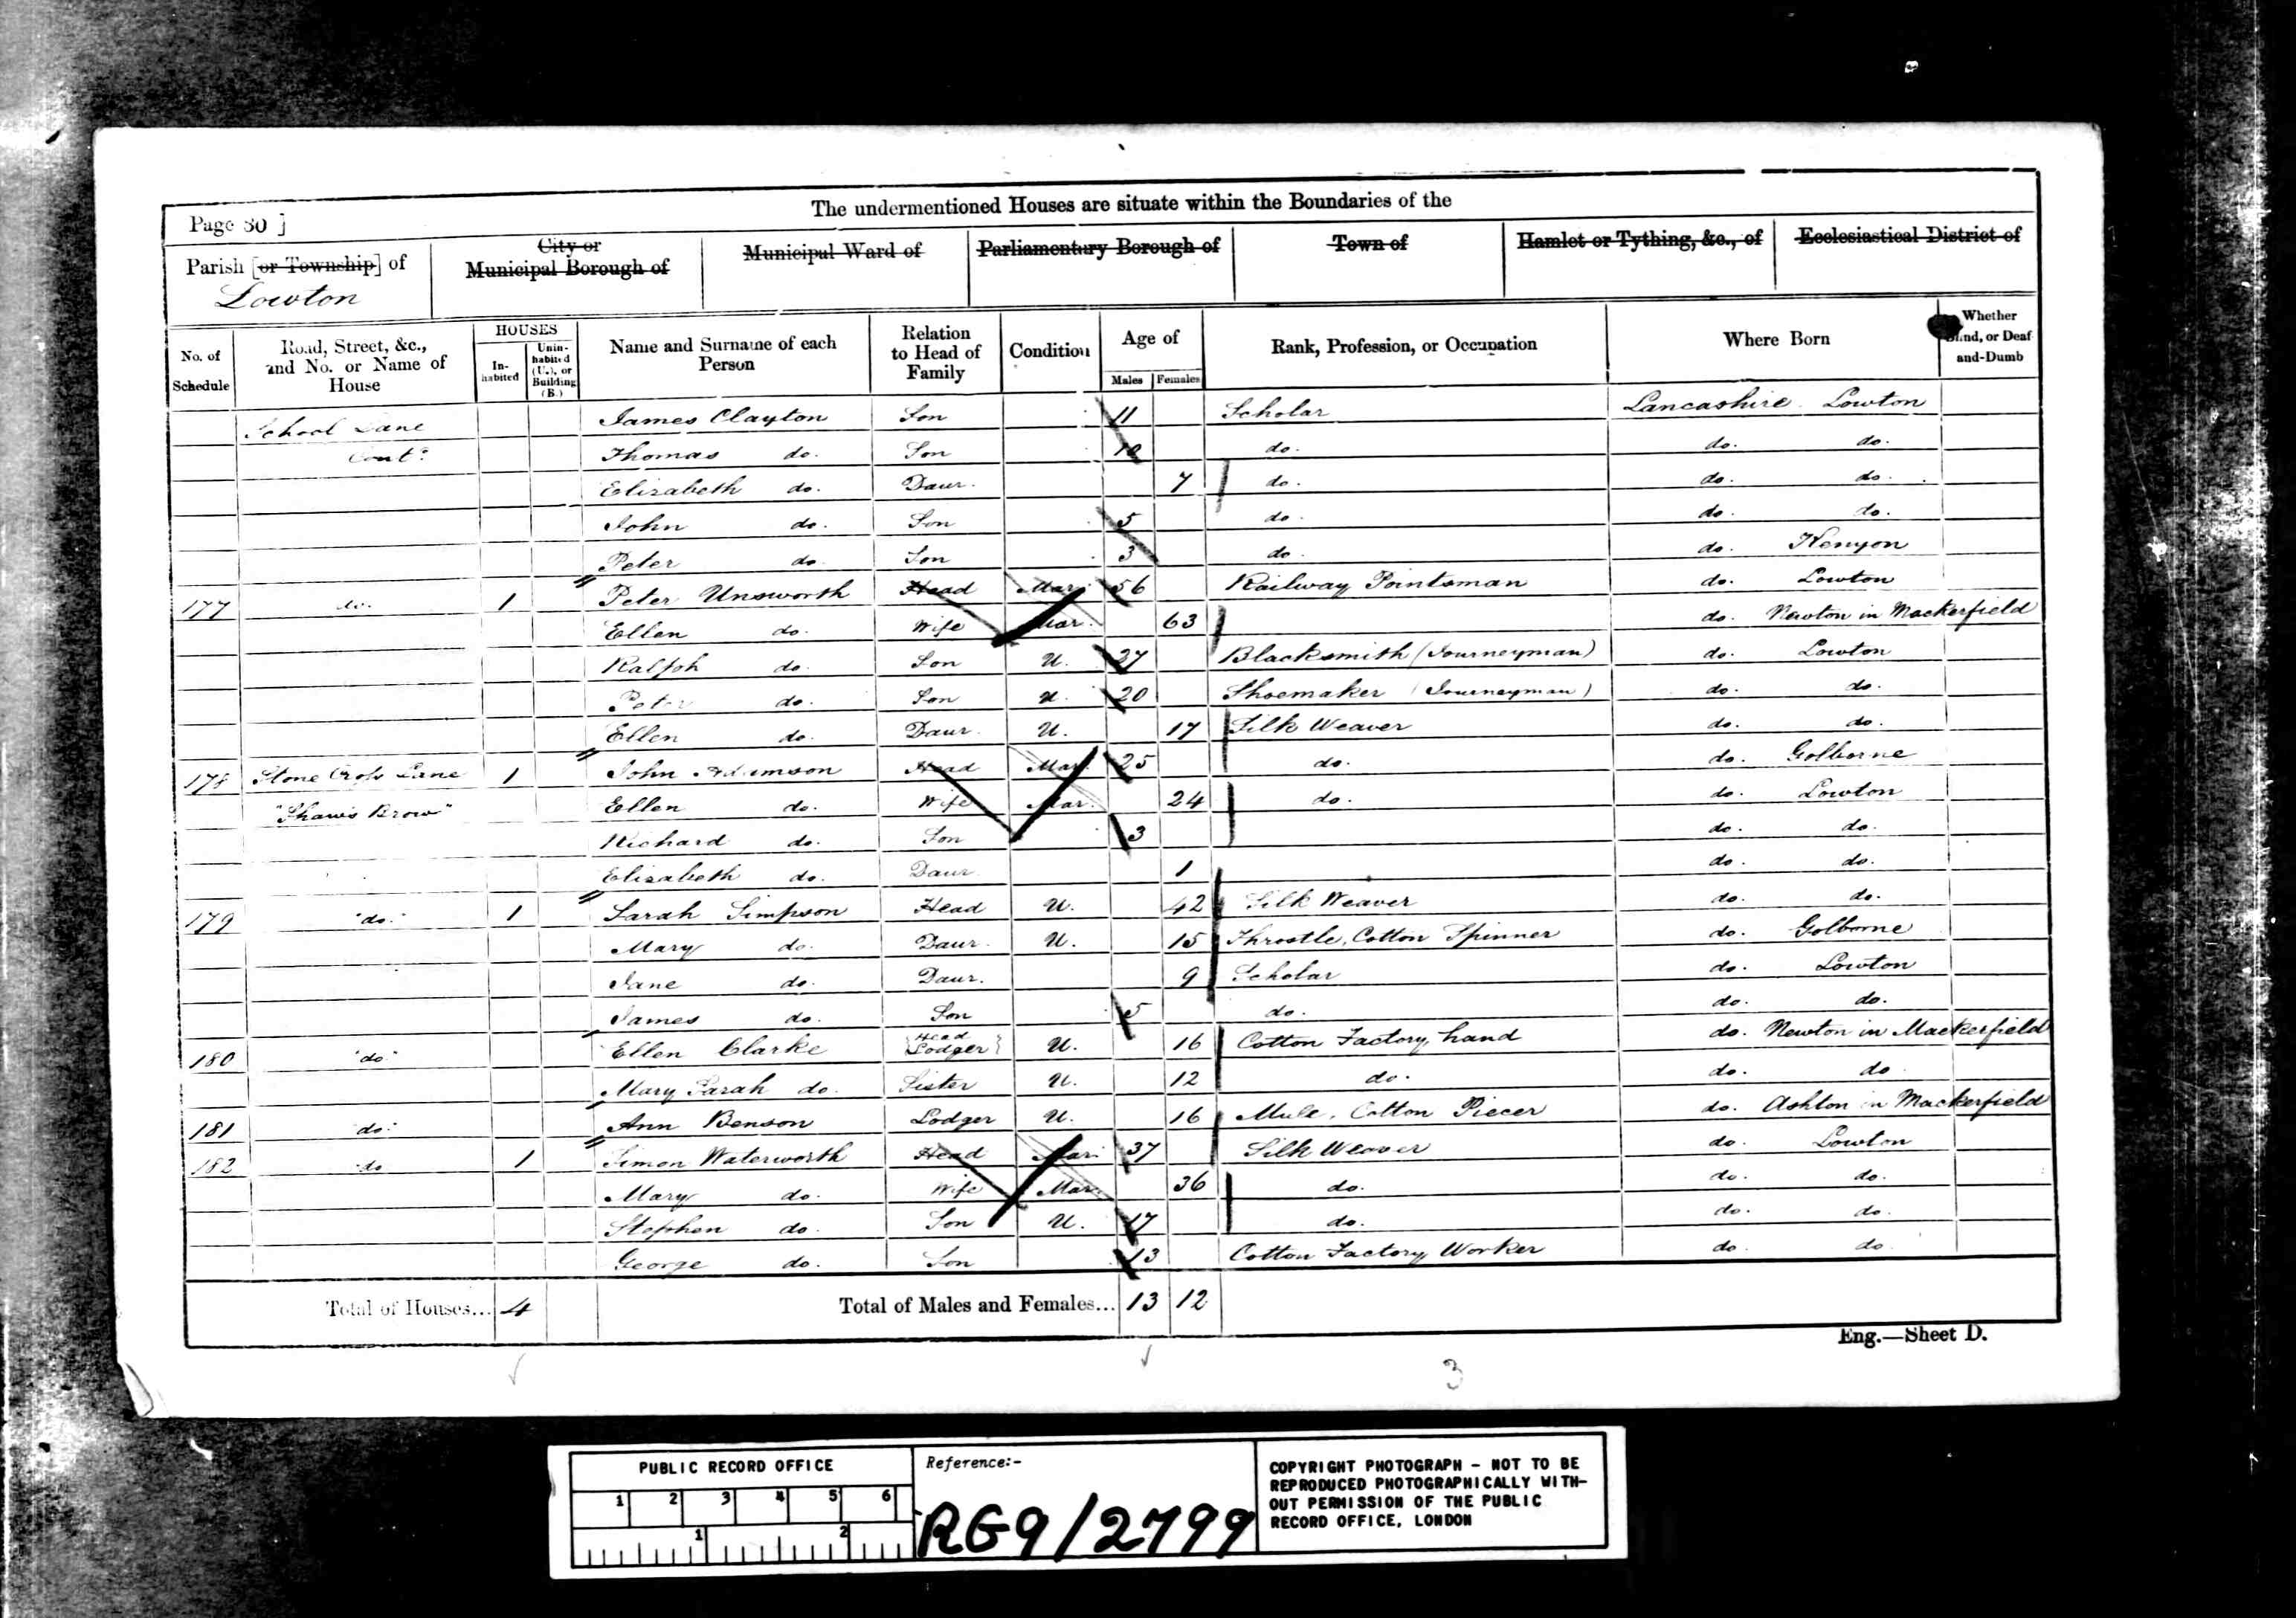 The undermentioned Houses are situate within the Boundaries of the
Page 30 ]
Parish [or Township] of
Lowton
City or
Municipal Borough of
Municipal Ward of
Parliamentary Borough of
Town of
Hamlet or Tything, &c., of
Ecclesiastical District of
No. of Schedule
Road, Street, &c., and No. or Name of House
HOUSES
In-habited
Unin-habited (U.), or Building (B.)
Name and Surname of each Person
Relation to Head of Family
Condition
Age of
Males
Females
Rank, Profession, or Occupation
Where Born
Whether Blind, or Deaf-and-Dumb
School Lane James Clayton Son 11 Scholar Lancashire Lowton
Cont. Thomas do. Son do. do. do.
Elizabeth do. Daur. 7 do. do. do.
John do. Son 5 do. do. do.
Peter do. Son 3 do. do. Kenyon
177 do. 1 Peter Unsworth Head Mar. 56 Railway Pointsman do. Lowton
Ellen do. Wife Mar. 63 do. Newton in Mackerfield
Ralph do. Son U. 27 Blacksmith (Journeyman) do. Lowton
Peter do. Son U. 20 Shoemaker (Journeyman) do. do.
Ellen do. Daur. U. 17 Silk Weaver do. do.
178 Stone Cross Lane 1 John Adamson Head Mar. 25 do. do. Golborne
"Shaws Brow" Ellen do. Wife Mar. 24 do. do. Lowton
Richard do. Son 3 do. do.
Elizabeth do. Daur. 1 do. do.
179 "do." 1 Sarah Simpson Head U. 42 Silk Weaver do. do.
Mary do. Daur. U. 15 Throstle, Cotton Spinner do. Golborne
Jane do. Daur. 9 Scholar do. Lowton
James do. Son 5 do. do. do.
180 "do" Ellen Clarke {Head Lodger} U. 16 Cotton Factory hand do. Newton in Mackerfield
Mary Sarah do. Sister U. 12 do. do. do
181 do. Ann Benson Lodger U. 16 Mule, Cotton Piecer do. Ashton in Mackerfield
182 do 1 Simon Waterworth Head Mar. 37 Silk Weaver do. Lowton
Mary do. Wife Mar. 36 do. do. do.
Stephen do. Son U. 17 do. do. do.
George do. Son 13 Cotton Factory Worker do. do
Total of Houses... 4 Total of Males and Females... 13 12
Eng.—Sheet D.
3
PUBLIC RECORD OFFICE
1 2 3 4 5 6
1 2
Reference:-
RG9/2799
COPYRIGHT PHOTOGRAPH - NOT TO BE
REPRODUCED PHOTOGRAPHICALLY WITH-
OUT PERMISSION OF THE PUBLIC
RECORD OFFICE, LONDON